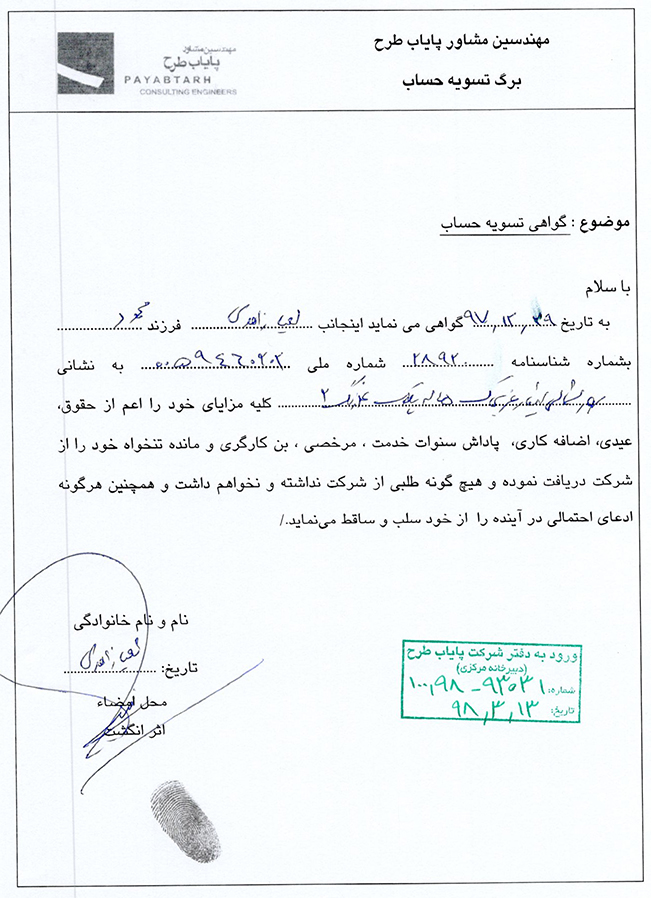 مهندسین مشاور پایاب طرح
برگ تسویه حساب
مهندسین مشاور
پایاب طرح
PAYABTARH
CONSULTING ENGINEERS
موضوع : گواهی تسویه حساب
با سلام
به تاریخ ۹۷,۱۲,۲۹ گواهی می نماید اینجانب زاهدی فرزند محمود
بشماره شناسنامه ۲۸۹۲۰ شماره ملی ۰۰۵۹۴۶۰۲۰۲ به نشانی
کلیه مزایای خود را اعم از حقوق،
عیدی، اضافه کاری، پاداش سنوات خدمت ، مرخصی ، بن کارگری و مانده تنخواه خود را از
شرکت دریافت نموده و هیچ گونه طلبی از شرکت نداشته و نخواهم داشت و همچنین هرگونه
ادعای احتمالی در آینده را از خود سلب و ساقط می‌نماید./
نام و نام خانوادگی
زاهدی
تاریخ:
محل امضاء
اثر انگشت
ورود به دفتر شرکت پایاب طرح
(دبیرخانه مرکزی)
شماره: ۱۰۰,۹۸-۹۳۰۳۱
تاریخ: ۹۸,۳,۱۳